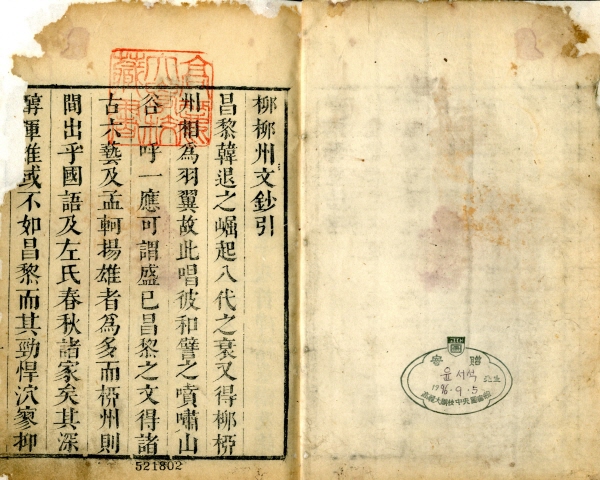 柳柳州文鈔引
昌黎韓退之崛起八代之衰又得柳柳
州相為羽翼故此唱彼和譬之噴嘯山
谷一呼一應可謂盛已昌黎之文得諸
古六藝及孟軻揚雄者為多而柳州則
間出乎國語及左氏春秋諸家矣其深
渾雄或不如昌黎而其勁悍泬寥抑
521802
寄贈
윤서석
1996.9.5